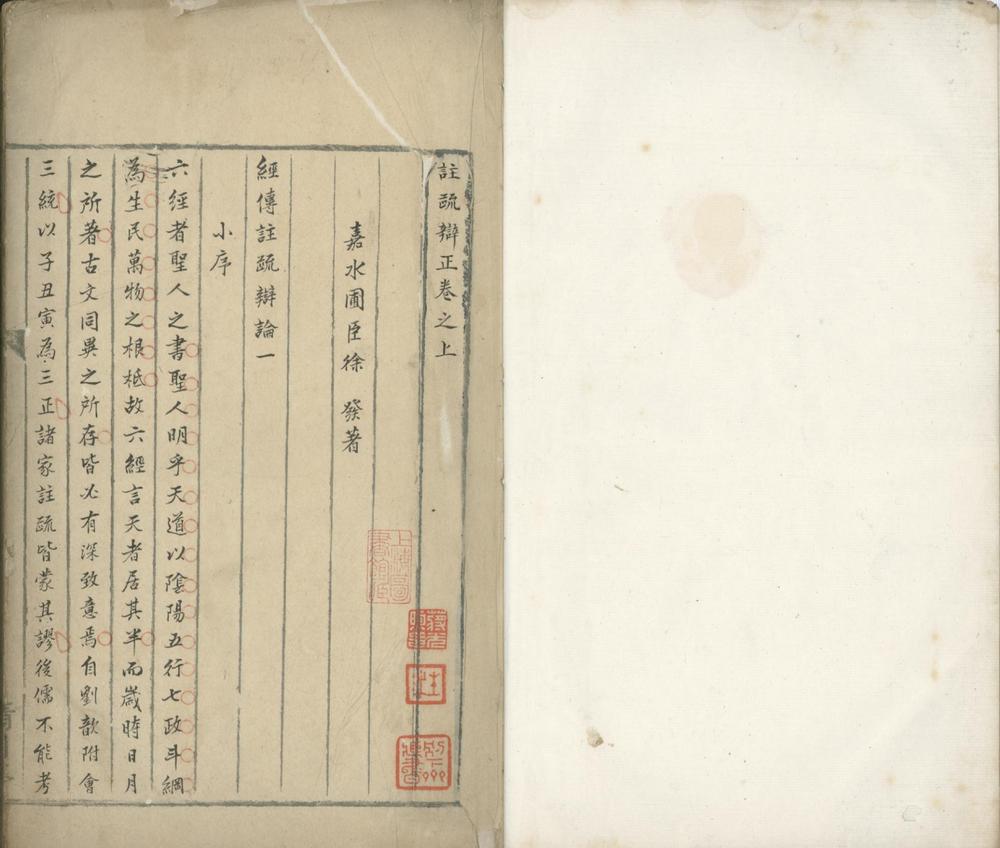 註疏辯正卷之上
嘉水圃臣徐 發著
經傳註疏辯論一
小序
六經者聖人之書聖人明乎天道以陰陽五行七政斗綱
為生民萬物之根柢故六經言天者居其半而歲時日月
之所著古文同異之所存皆必有深致意焉自劉歆附會
三統以子丑寅為三正諸家註疏皆蒙其謬後儒不能考